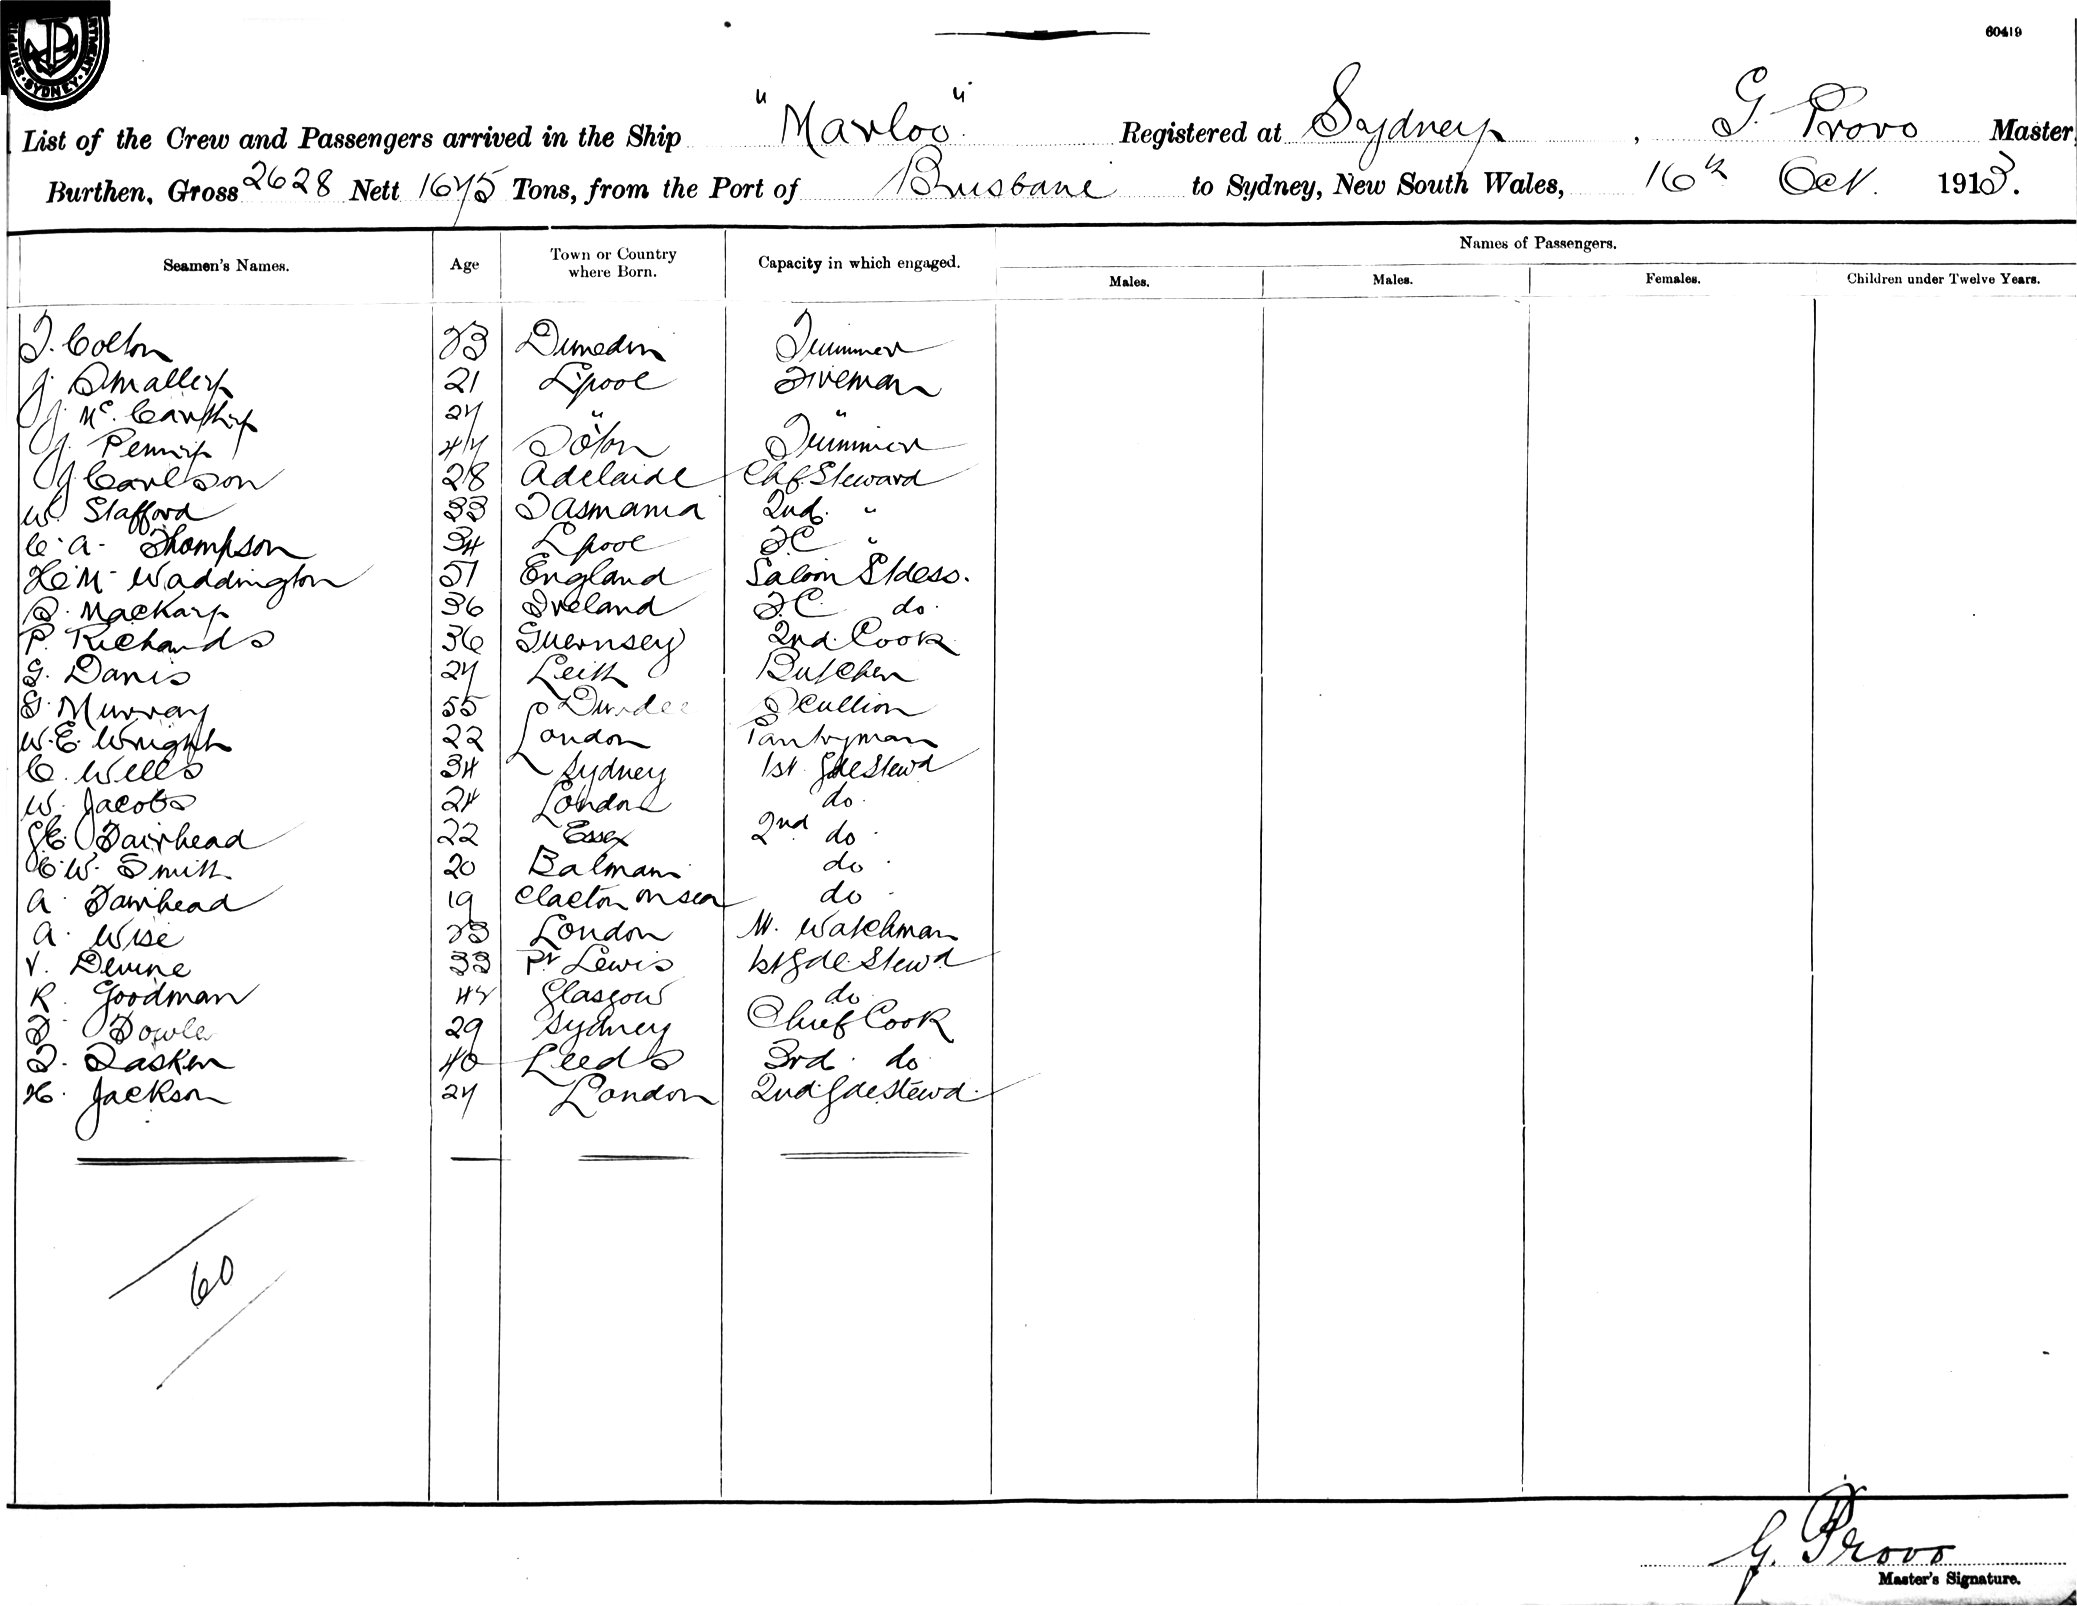 SHIPPING SYDNEY
60419
List of the Crew and Passengers arrived in the Ship "Marloo" Registered at Sydney, G. Provo Master
Burthen, Gross 2628 Nett 1675 Tons, from the Port of Brisbane to Sydney, New South Wales, 16th Oct. 1913.
Names of Passengers.
Seamen's Names. Age Town or Country where Born. Capacity in which engaged. Males. Males. Females. Children under Twelve Years.
T. Colton 23 Dunedin Trimmer
J. Smalley 21 L'pool Fireman
J. McCarthy 27 " "
J. 47 S'ton Trimmer
J Carlson 28 Adelaide Chf. Steward
W. Stafford 33 Tasmania 2nd. "
C. A. Thompson 34 L'pool FC "
H. M. Waddington 51 England Saloon Stdess.
S. Mackay 36 Ireland F.C. do.
P. Richards 36 Guernsey 2nd. Cook
G. Davis 27 Leith Butcher
G. Murray 55 Dundee Scullion
W. E. Wright 22 London Pantryman
C. Wells 34 Sydney 1st. Gde Stewd
W. Jacobs 24 London do.
G E. Fairhead 22 Essex 2nd do.
C. W. Smith 20 Balmain do.
A. Fairhead 19 Clacton on sea do.
A. Wise 23 London N. Watchman
V. Devine 33 Pt Lewis 1st Gde. Stewd
R. Goodman Glasgow do.
F. Fowler 29 Sydney Chief Cook
T. Tasker 40 Leeds 3rd. do
H. Jackson 27 London 2nd. Gde Stewd.
60
G. Provo
Master's Signature.